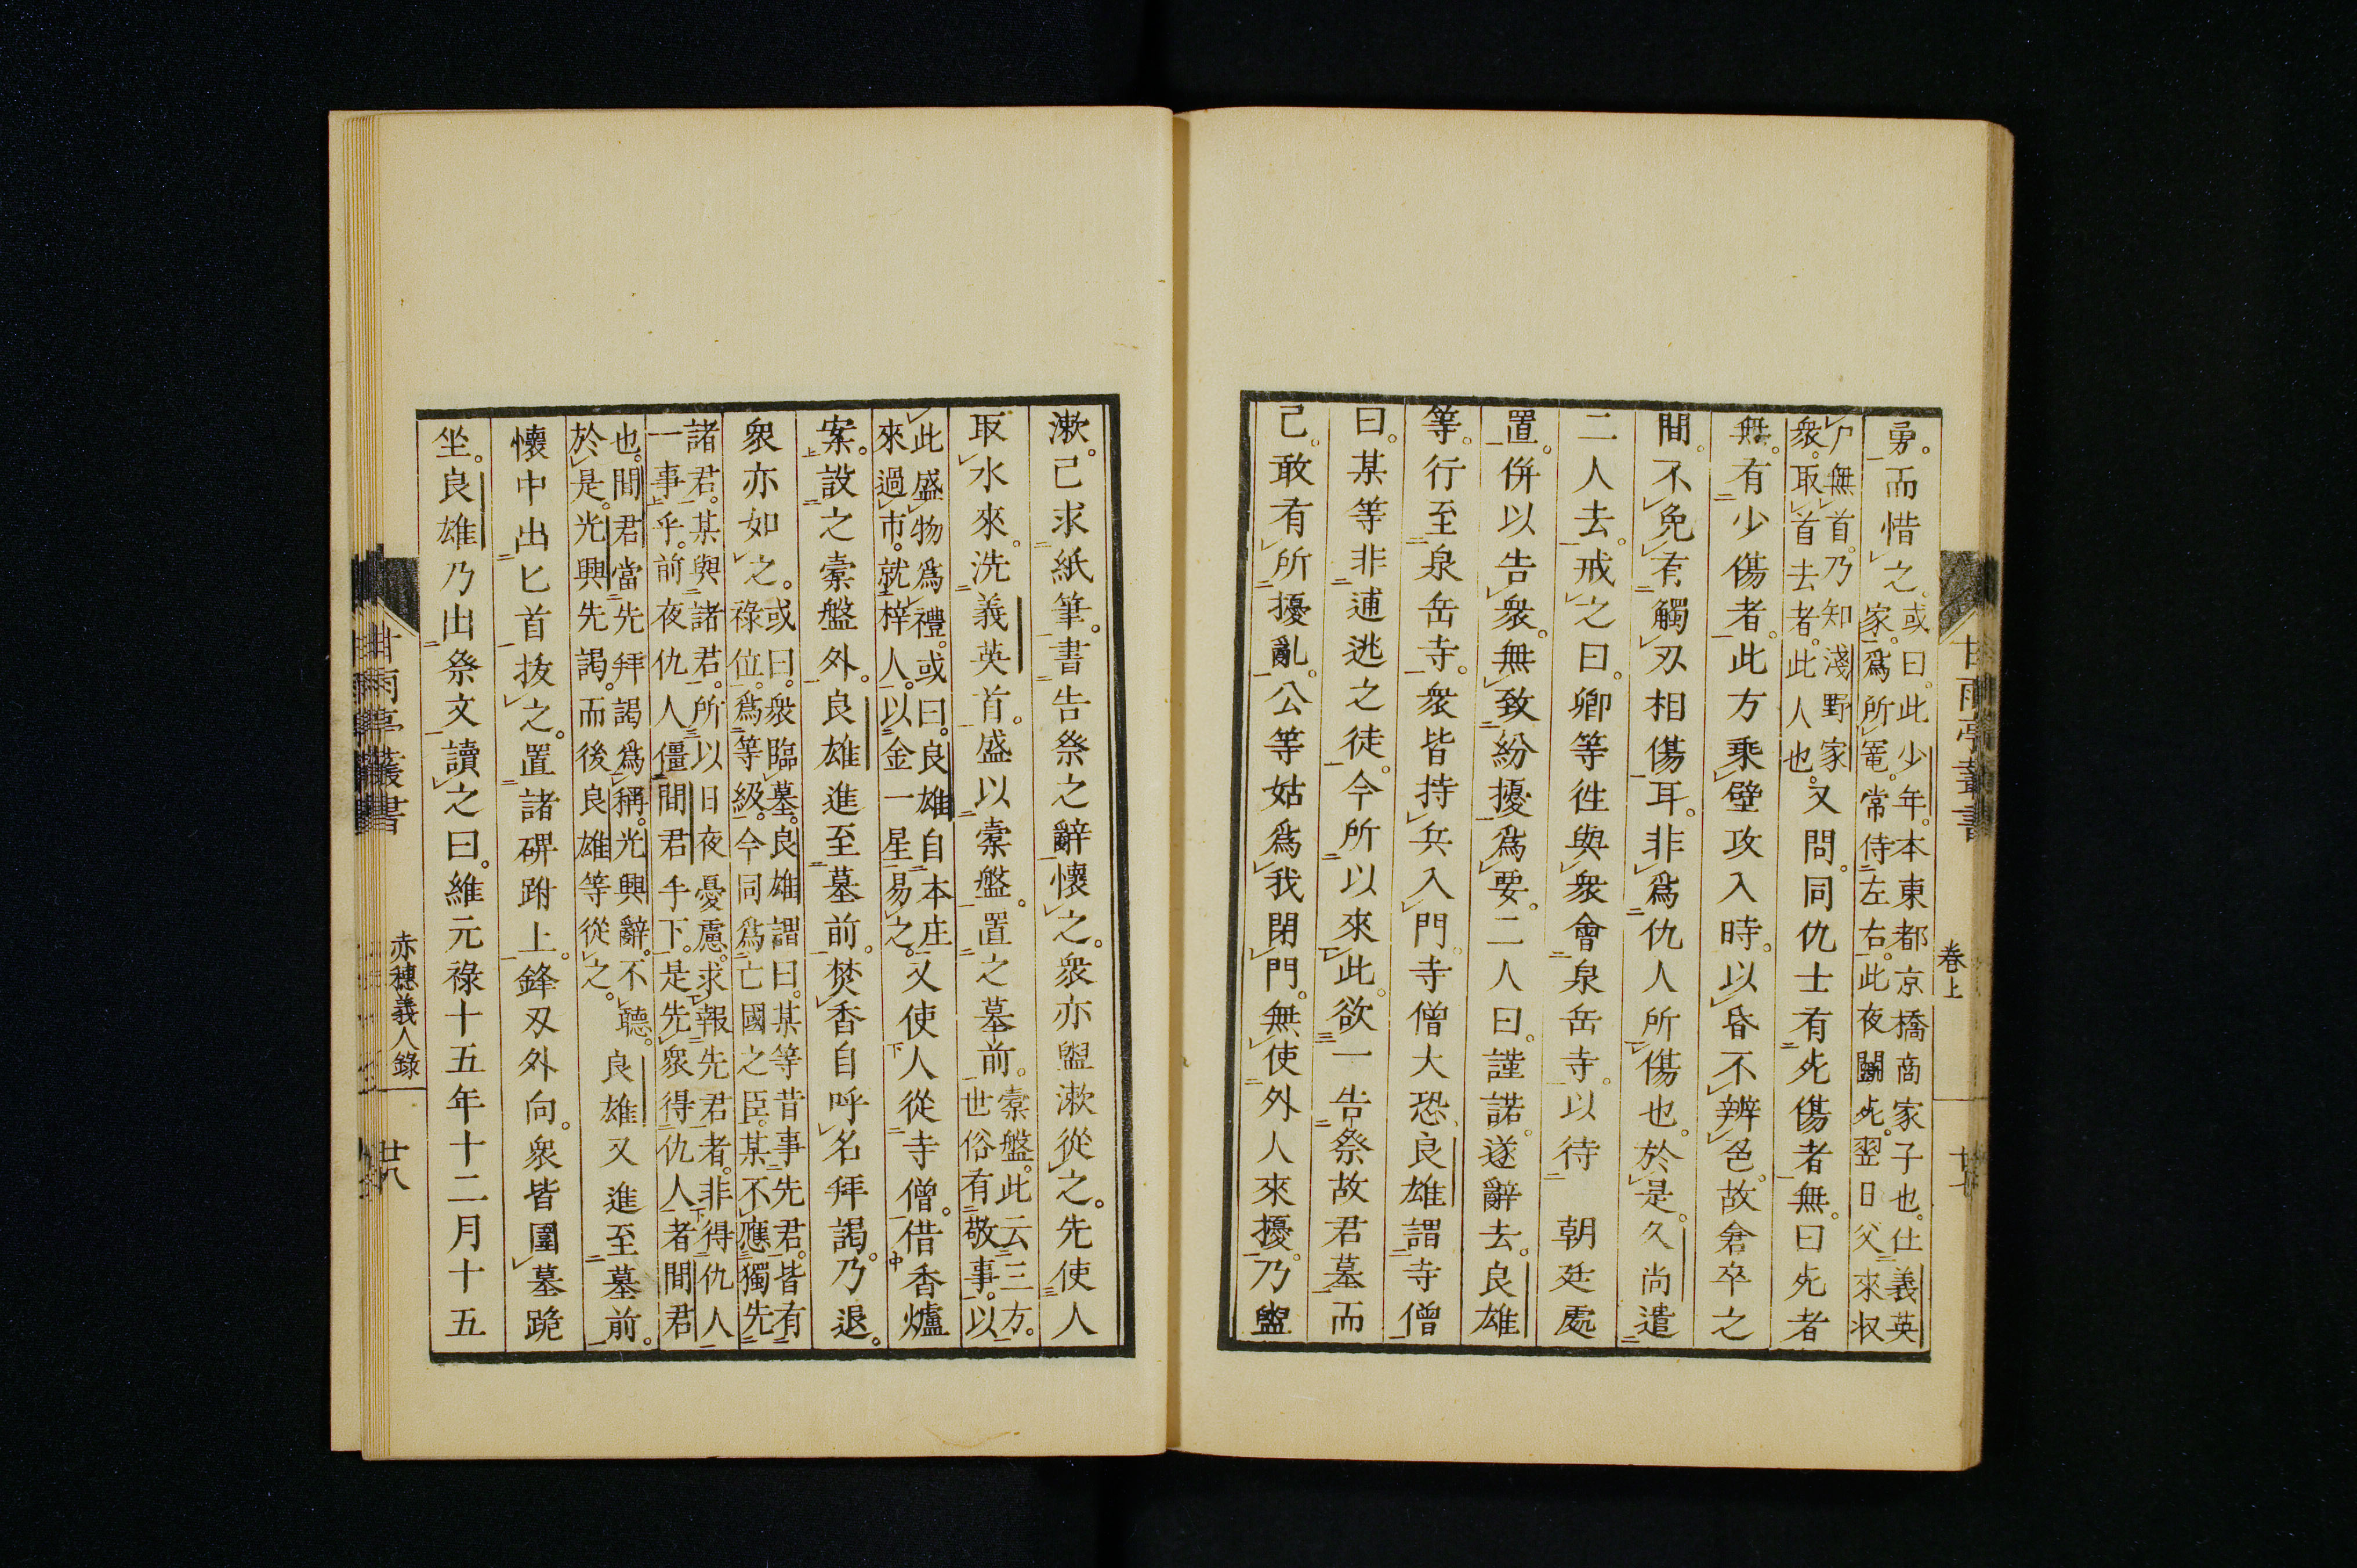 甘雨亭叢書
卷上
廿七
勇。而惜之。或曰。此少年。本東都京橋商家子也。仕義英
家。爲所寵。常侍左右。此夜鬪死。翌日父來收
尸無首。乃知淺野家
衆。取首去者。此人也。又問。同仇士有死傷者無。曰死者
無。有少傷者。此方乘壁攻入時。以昏不辨色。故倉卒之
間。不免有觸刃相傷耳。非爲仇人所傷也。於是。久尚遣
二人去。戒之曰。卿等徃與衆會泉岳寺。以待 朝廷處
置。併以告衆。無致紛擾爲要。二人曰。謹諾。遂辭去。良雄
等。行至泉岳寺。衆皆持兵入門。寺僧大恐。良雄謂寺僧
曰。某等非逋逃之徒。今所以來此。欲一告祭故君墓而
己。敢有所擾亂。公等姑爲我閉門。無使外人來擾。乃盥
漱。己求紙筆。書告祭之辭懷之。衆亦盥漱從之。先使人
取水來。洗義英首。盛以橐盤。置之墓前。橐盤。此云三方。
世俗有敬事。以
此盛物爲禮。或曰。良雄自本庄
來過市。就梓人。以金一星易之。又使人從寺僧。借香爐
案。設之橐盤外。良雄進至墓前。焚香自呼名拜謁。乃退。
衆亦如之。或曰。衆臨墓。良雄謂曰。某等昔事先君。皆有
祿位。爲等級。今同爲亡國之臣。某不應獨先
諸君。某與諸君。所以日夜憂慮。求報先君者。非得仇人
一事乎。前夜仇人僵間君手下。是先衆得仇人者間君
也。間君當先拜謁爲稱。光興辭。不聽。
於是。光興先謁。而後良雄等從之。良雄又進至墓前。
懷中出匕首拔之。置諸碑跗上。鋒刃外向。衆皆圍墓跪
坐。良雄乃出祭文讀之曰。維元祿十五年十二月十五
甘雨亭叢書
赤穗義人錄
廿八